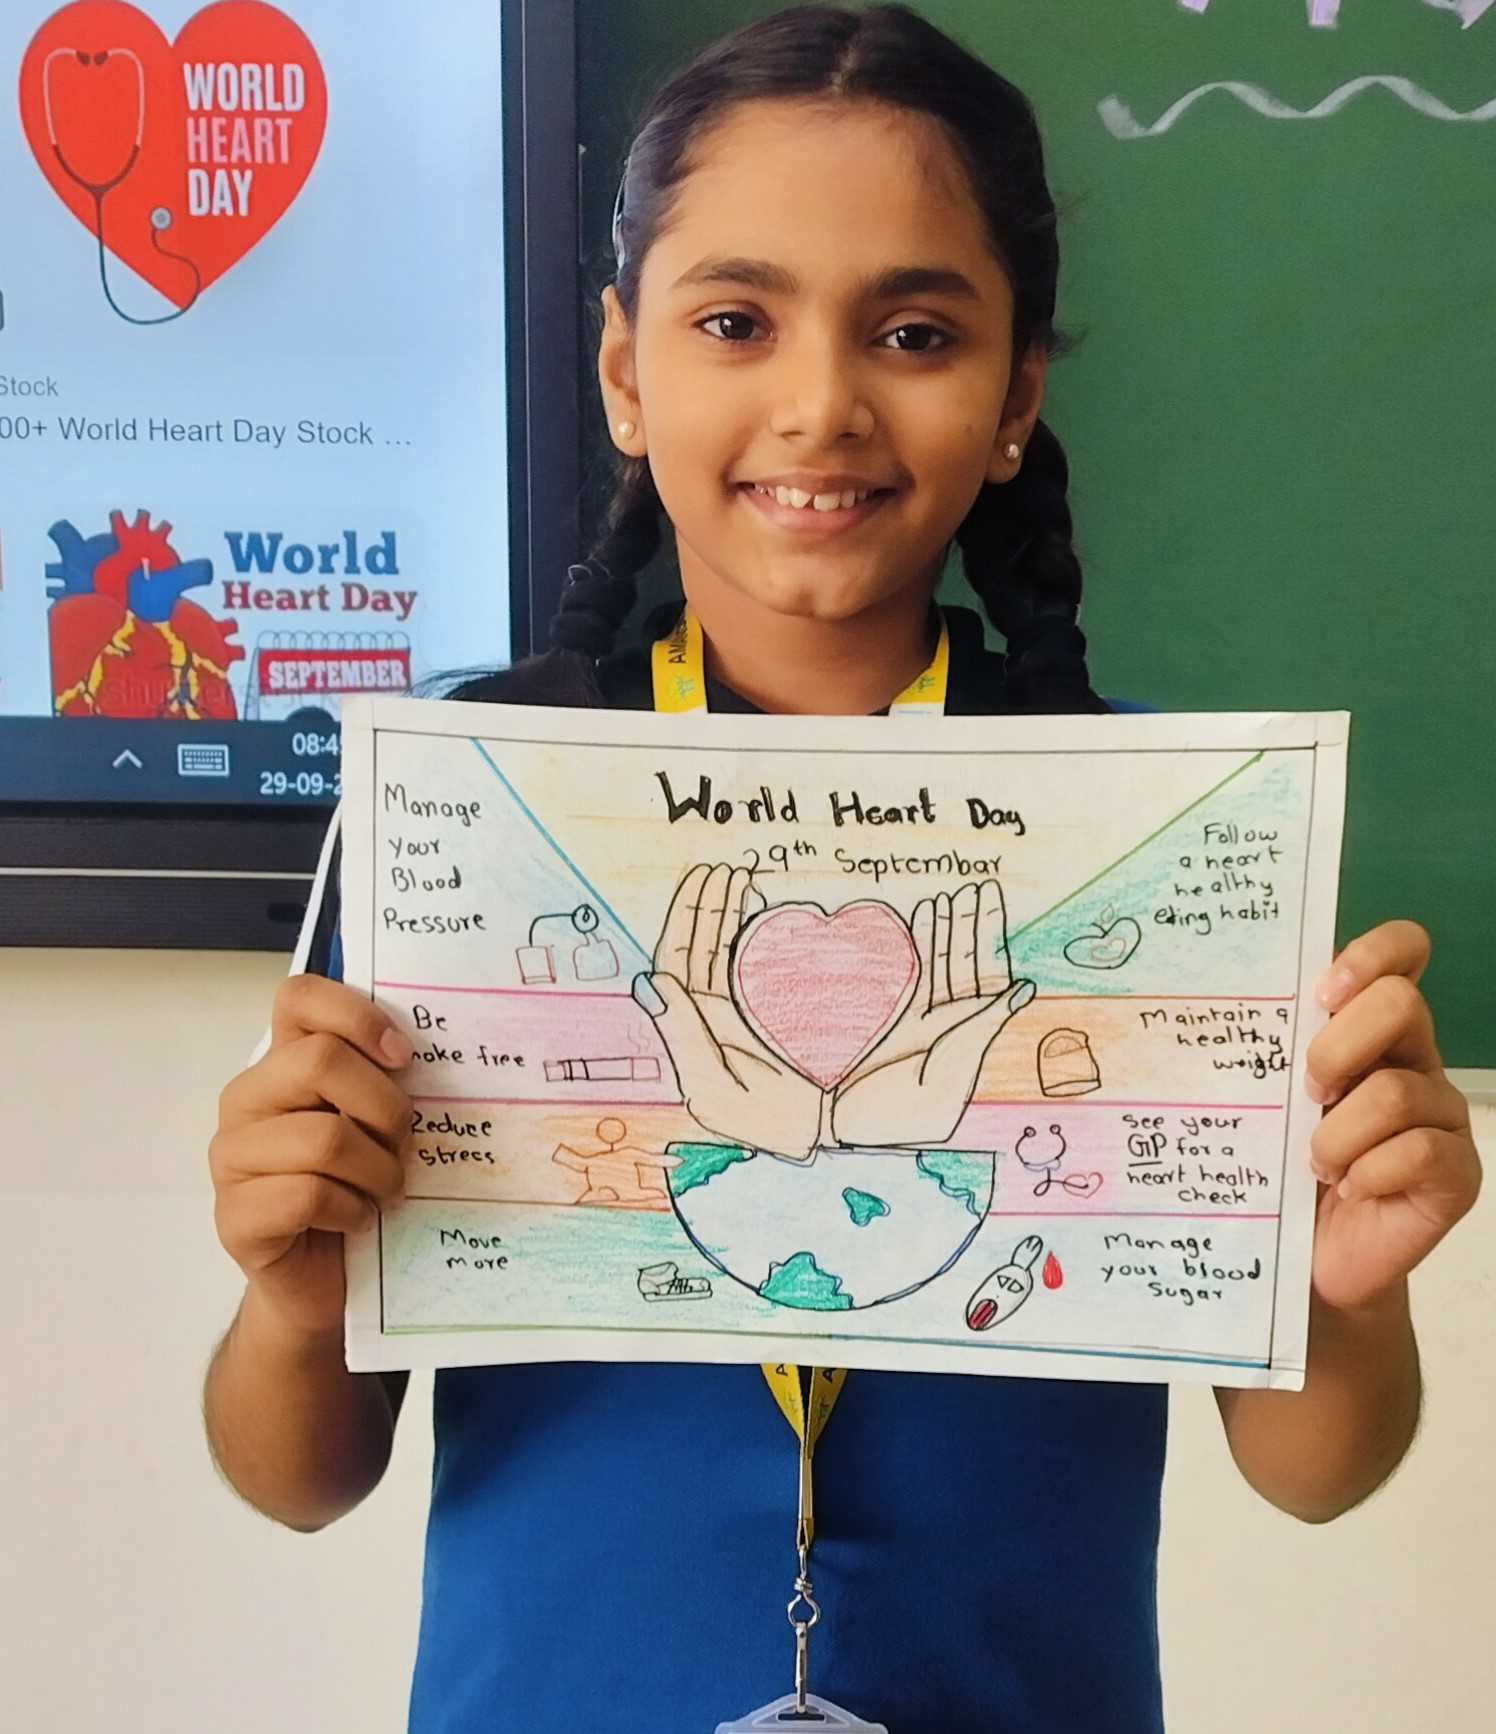 WORLD
HEART
DAY
Stock
00+ World Heart Day Stock ...
World
Heart Day
SEPTEMBER
08:4
29-09-2
World Heart Day
29th Septembar
Manage
your
Blood
Pressure
Be
moke free
Reduce
stress
Move
more
Follow
a heart
healthy
eting habit
Maintain a
healthy
weight
See your
GP for a
heart health
check
Manage
your blood
Sugar